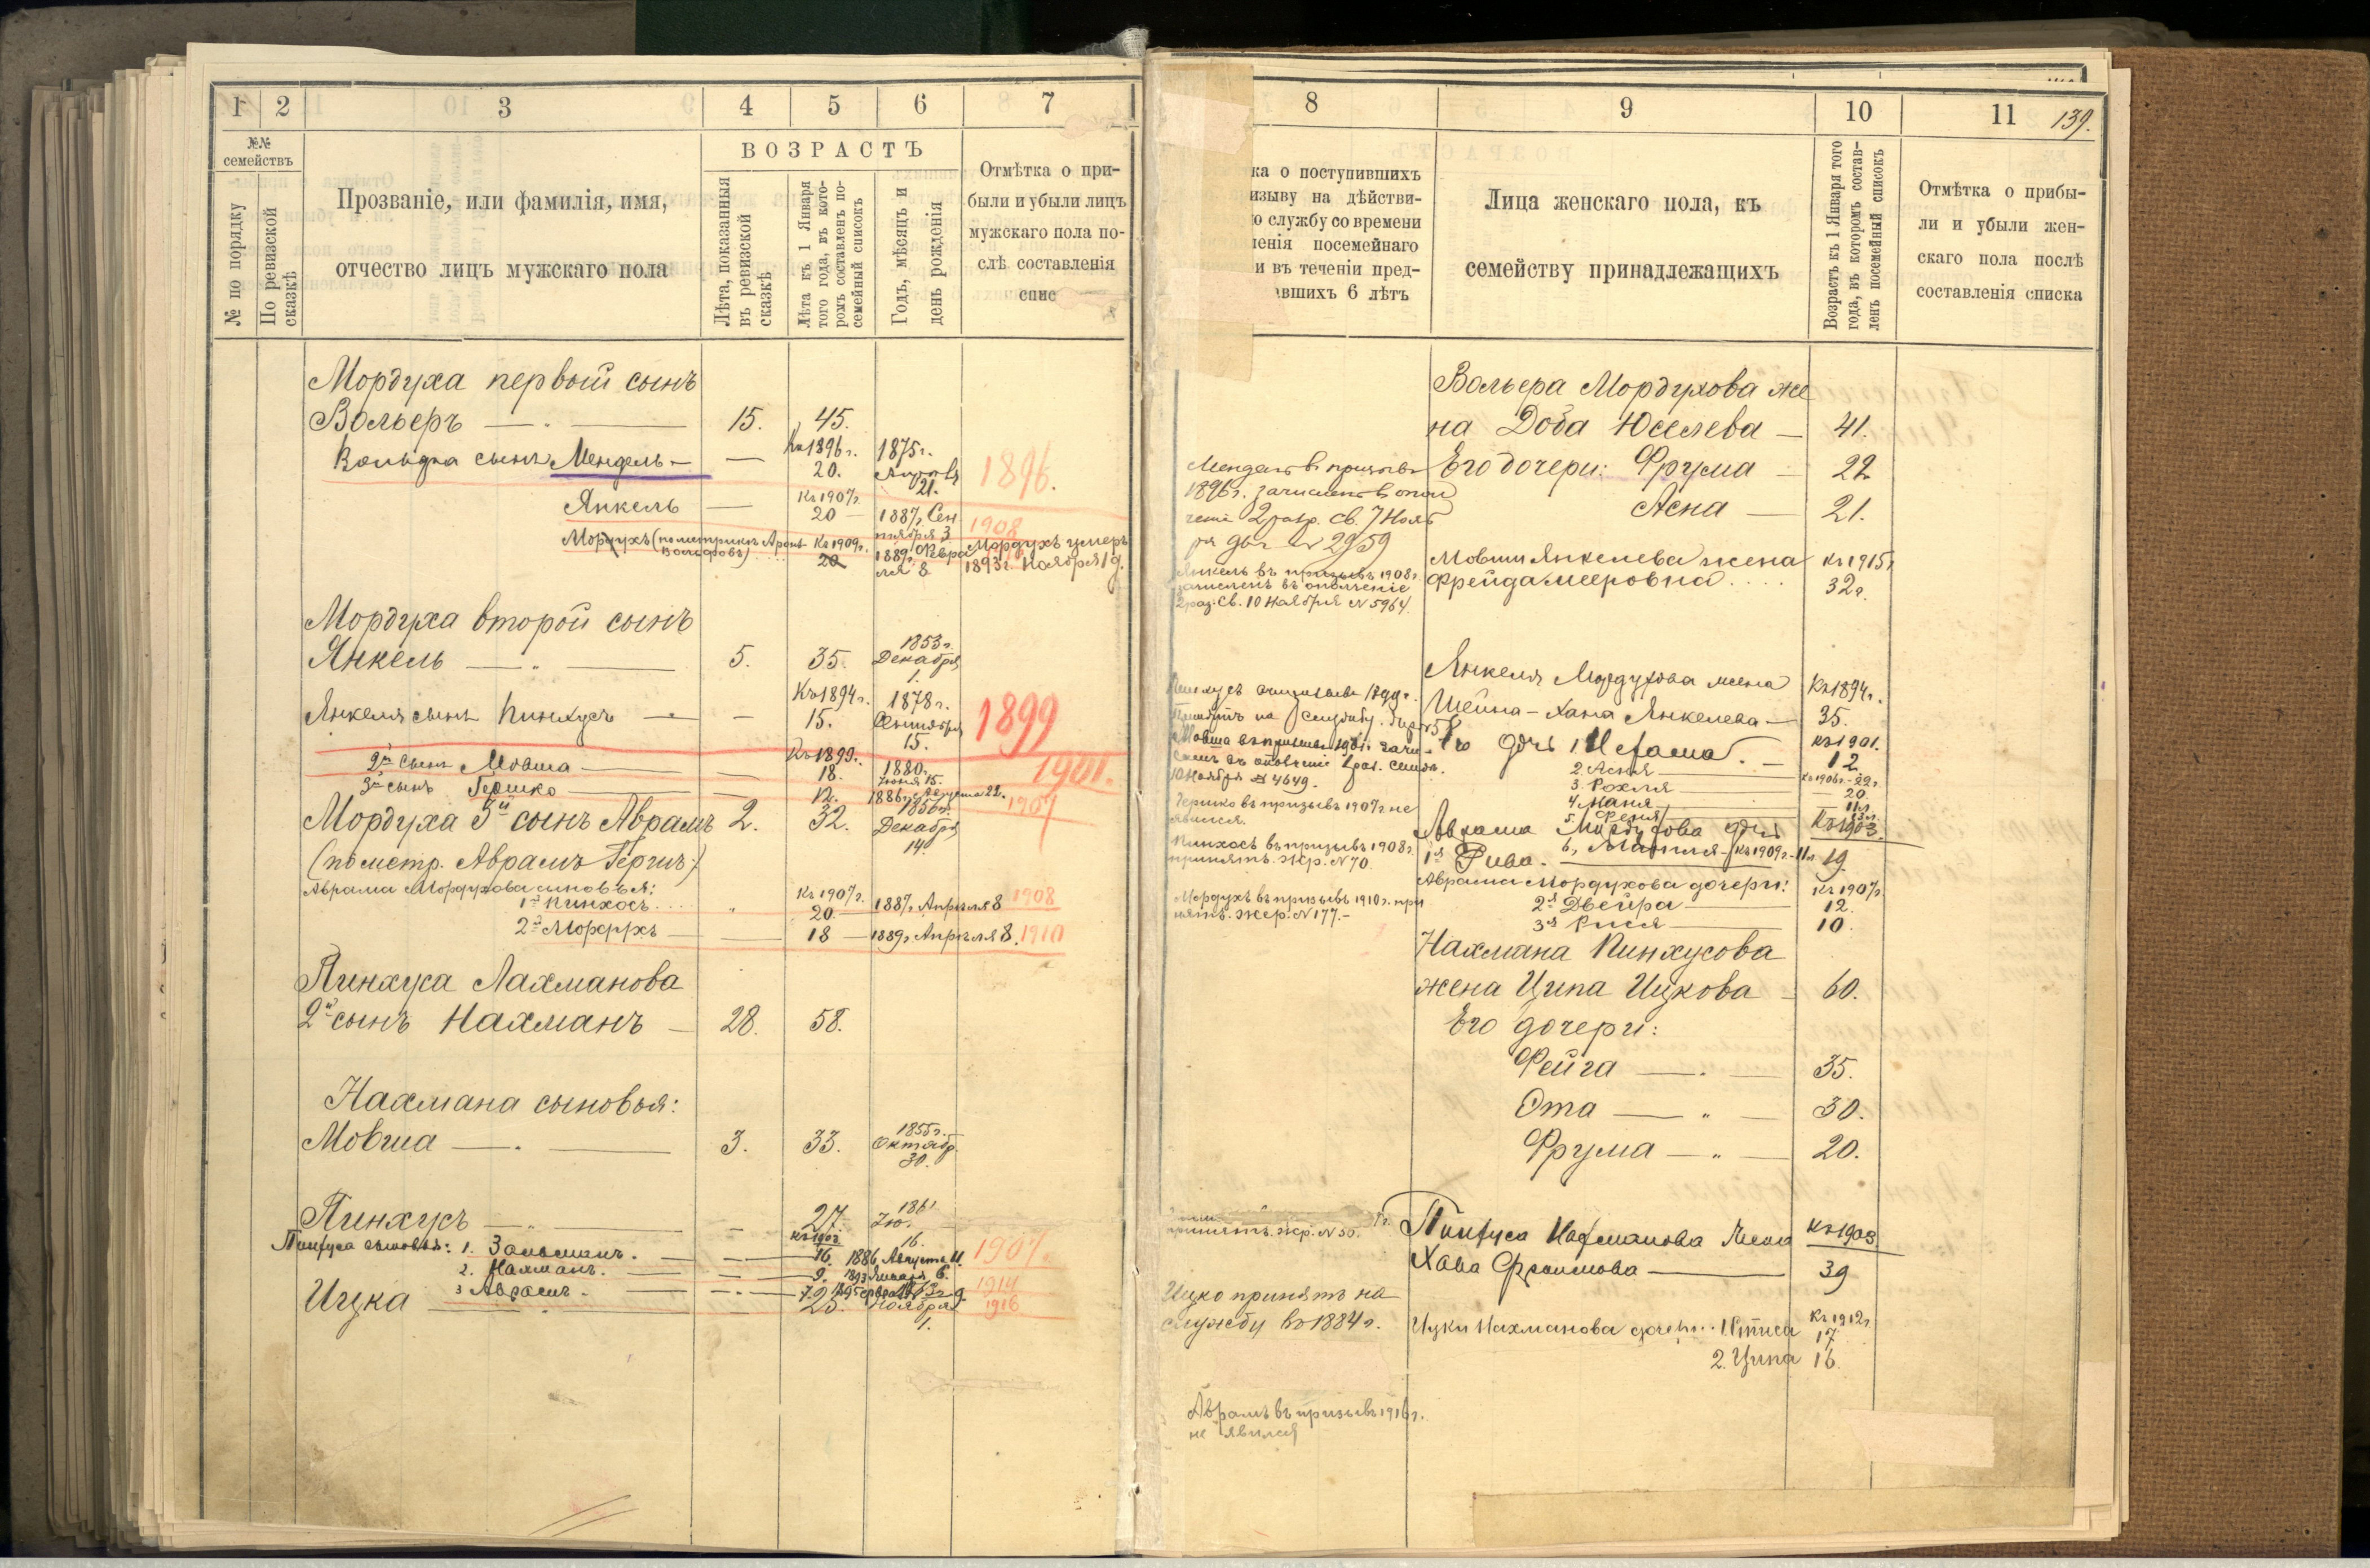 1 2 3 4 5 6 7
№№ семействъ
№ по порядку
По ревизской сказкѣ
Прозваніе, или фамилія, имя,
отчество лицъ мужскаго пола
ВОЗРАСТЪ
Лѣта, показанныя
въ ревизской
сказкѣ
Лѣта къ 1 Января
того года, въ кото-
ромъ составленъ по-
семейный списокъ
Годъ, мѣсяцъ и
день рожденія
Отмѣтка о при-
были и убыли лицъ
мужскаго пола по-
слѣ составленія
спис
Мордуха первый сынъ
Вольеръ 15. 45.
Къ 1896 г. 1875 г.
сынъ Мендель 20. 21. 1896.
Къ 1907 г.
Янкель 20 1887 г. Сен
тября 3 1908
Мордухъ (по метрикѣ Аронъ Къ 1909 г. 1889 г. Февра Мордухъ умеръ
20 ля 8 1893 г. Ноября 19.
Мордуха второй сынъ
1853 г.
Янкель 5. 35. Декабря
1.
Къ 1894 г. 1878 г.
Янкеля сынъ Пинхусъ 15. Сентября 1899
15.
Къ 1899.
2й сынъ Мовша 18. 1880. Іюня 15. 1901.
3й сынъ Гершко 12. 1886 г. Августа 22. 1907
1856 г.
Мордуха 3й сынъ Аврамъ 2. 32. Декабря
14.
(по метр. Аврамъ Гершъ)
Аврама Мордухова сыновья: Къ 1907 г.
1й Пинхосъ 20 1887 г. Апрѣля 8 1908
2й Мордухъ 18 1889 г. Апрѣля 8. 1910
Пинхуса Лахманова
2й сынъ Нахманъ 28. 58.
Нахмана сыновья:
1855 г.
Мовша 3. 33. Октябр.
30.
1861
Пинхусъ 27. 16.
Къ 1903
Пинхуса сыновья: 1. Зальманъ. 16. 1886 Августа 11. 1907.
2. Нахманъ. 9. 1893 Января 6. 1914
3 Аврамъ. 1916
Ицка 25. Ноября
1.
8 9 10 11 139.
ка о поступившихъ
изыву на дѣйстви-
ю службу со времени
ленія посемейнаго
и въ теченіи пред-
авшихъ 6 лѣтъ
Лица женскаго пола, къ
семейству принадлежащихъ
Возрастъ къ 1 Января того
года, въ которомъ состав-
ленъ посемейный списокъ
Отмѣтка о прибы-
ли и убыли жен-
скаго пола послѣ
составленія списка
Вольера Мордухова же
на Доба Юселева 41.
Мендель въ призывъ Его дочери: Фрума 22
1896 г. зачисленъ въ опол
ченіе 2 разр. св. 7 Нояб Асна 21.
ря № 2959
Мовши Янкелева жена Къ 1915 г.
Янкель въ призывъ 1908 г. Фрейда Мееровна 32 г.
зачисленъ въ ополченіе
2 раз. Св. 10 Ноября № 5964.
Янкеля Мордухова жена Къ 1894 г.
Шейна-Хана Янкелева 35.
Мовша въ призывъ 1901 г. зачи-
сленъ въ ополченіе 1 раз.
10 Ноября № 4649.
Къ 1901.
12
2. Асня Къ 1906 г. - 22 г.
3. Рохля 20.
4. Маня 11 л.
5. Феня
Гершко въ призывъ 1907 г. не
явился.
Аврама Мордухова Къ 1903.
Къ 1909 г. 11 л.
1я Рива. 19.
Пинхосъ въ призывъ 1908 г.
принятъ. Жер. № 70.
Аврама Мордухова дочери: Къ 1907 г.
2я Двейра 12.
3я Рися 10.
Мордухъ въ призывъ 1910 г. при
нятъ. Жер. № 177.
Нахмана Пинхусова
жена Ципа Ицкова 60.
Его дочери:
Фейга 35.
Эта 30.
Фрума 20.
принятъ. Жер. № 50.
Пинхуса Нахманова жена Къ 1903
Хава Фраимова 39
Ицко принятъ на
службу въ 1884 г.
Ицки Нахманова дочери: Къ 1912 г.
17
2. Ципа 16
Аврамъ въ призывъ 1916 г.
не явился